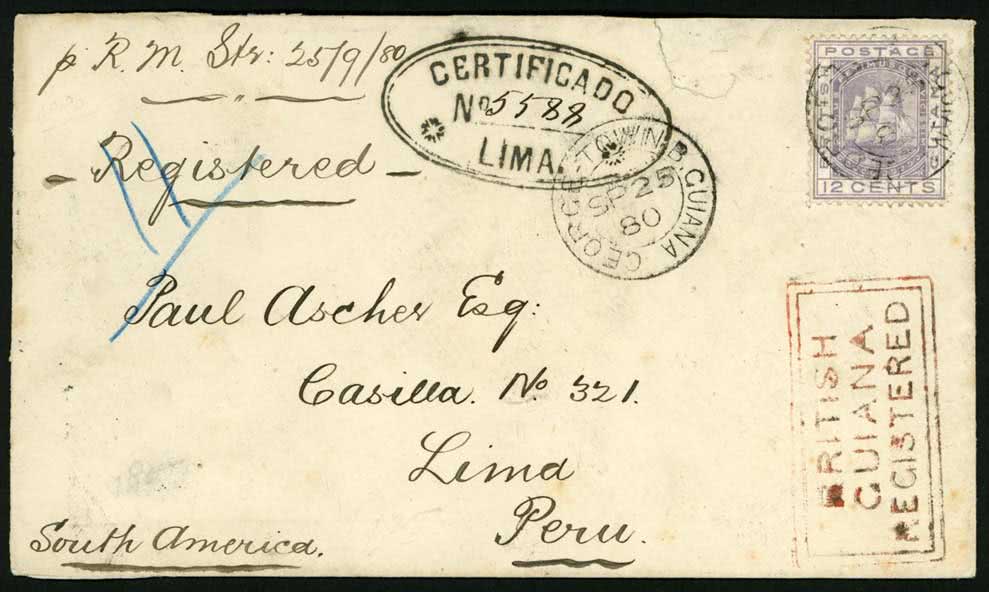 p R. M. Str: 25/9/80
Registered
CERTIFICADO
No 5588
LIMA
GEORGETOWN B. GUIANA
SP 25
80
POSTAGE
12 CENTS
Paul Ascher Esq:
Casilla. No. 321.
Lima
Peru.
South America.
BRITISH
GUIANA
REGISTERED